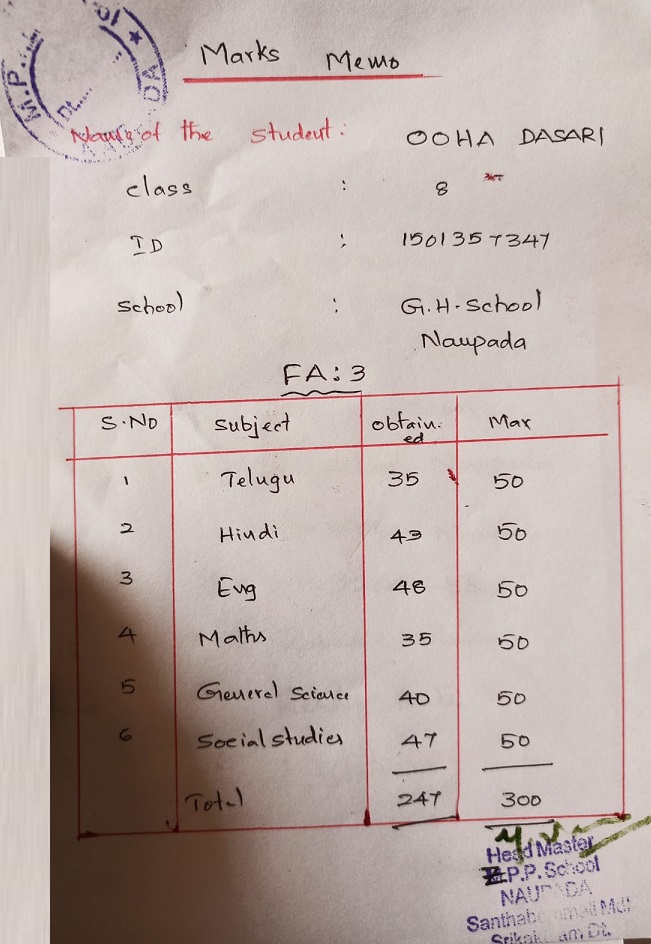 M.P.
DA
DL
Marks Memo
Name of the student: OOHA DASARI
class : 8
ID : 1501357347
School : G.H.School
Naupada
FA:3
S.NO Subject obtain. Max
ed
1 Telugu 35 50
2 Hindi 43 50
3 Eng 48 50
4 Maths 35 50
5 General Science 40 50
6 Social studies 47 50
Total 247 300
Head Master
M.P.P. School